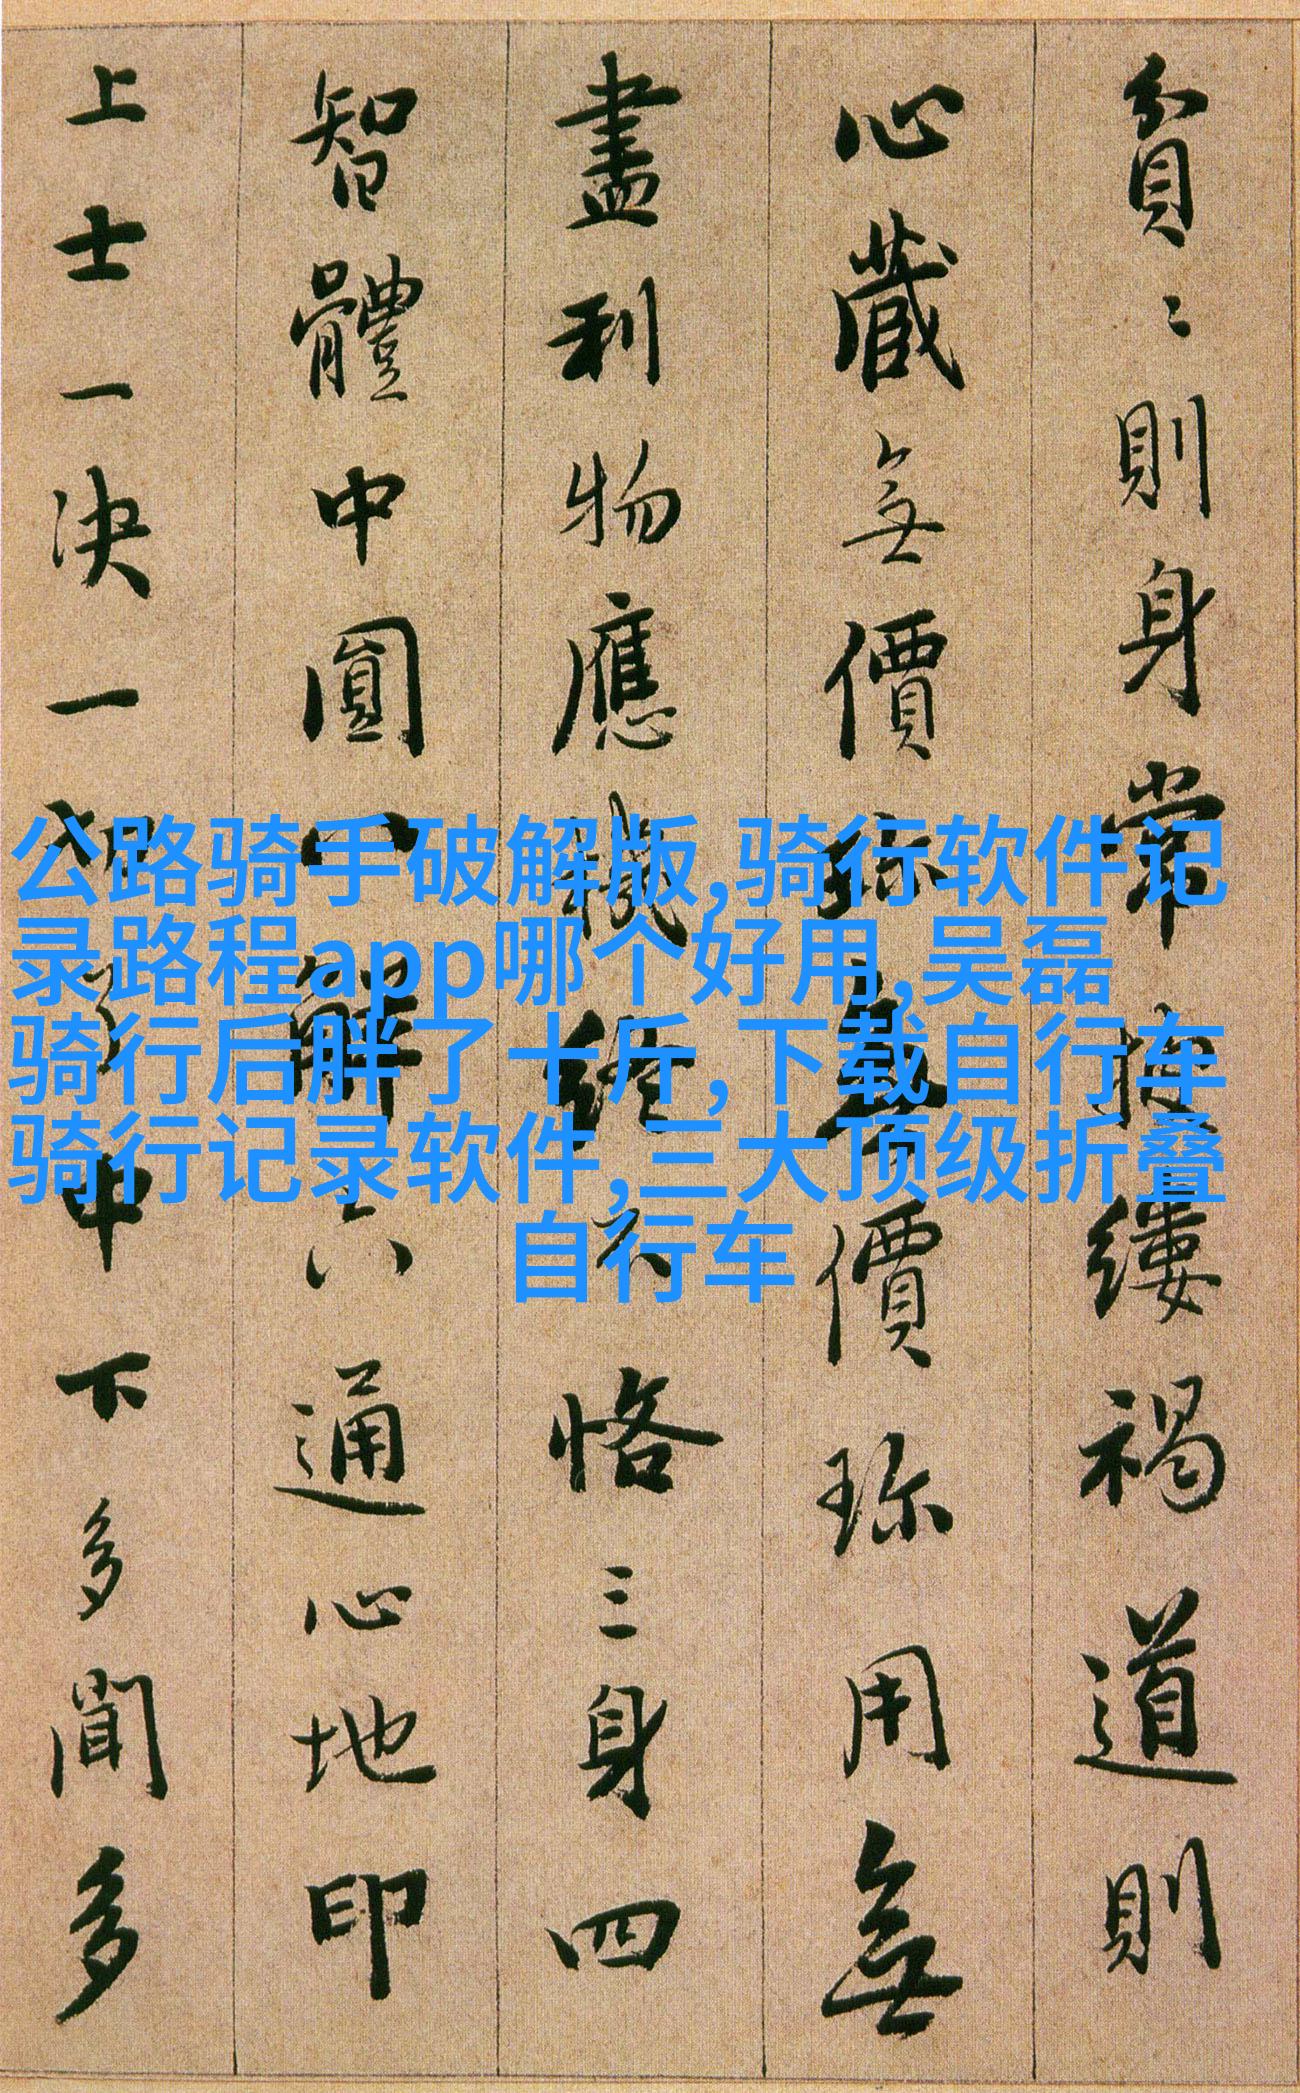 貧〻〻則身常披縷褐道則
心藏無價珎無價珎用無
盡利物應機終不恪三身四
智體中圓八解六通心地印
上士一决一切了中下多聞多
公路骑手破解版,骑行软件记
录路程app哪个好用,吴磊
骑行后胖了十斤,下载自行车
骑行记录软件,三大顶级折叠
自行车